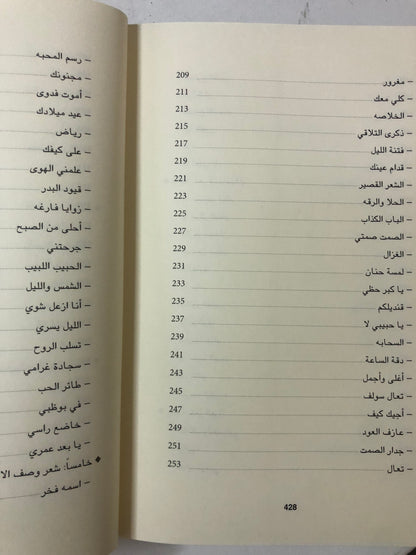 – مغرور 209
– كلي معك 211
– الخلاصه 213
– ذكرى التلاقي 215
– فتنة الليل 217
– قدام عينك 219
– الشعر القصير 221
– الحلا والرقه 223
– الباب الكذاب 225
– الصمت صمتي 227
– الغزال 229
– لمسة حنان 231
– يا كبر حظي 233
– قنديلكم 235
– يا حبيبي لا 237
– السحابه 239
– دقة الساعة 241
– أغلى وأجمل 243
– تعال سولف 245
– أجيك كيف 247
– عازف العود 249
– جدار الصمت 251
– تعال 253
428
– رسم المحبه
– مجنونك
– أموت فدوى
– عيد ميلادك
– رياض
– على كيفك
– علمني الهوى
– قيود البدر
– زوايا فارغه
– أحلى من الصبح
– جرحتني
– الحبيب اللبيب
– الشمس والليل
– أنا ازعل شوي
– الليل يسري
– تسلب الروح
– سجادة غرامي
– طائر الحب
– في بوظبي
– خاضع راسي
– يا بعد عمري
◆ خامساً: شعر وصف الا
– اسمه فخر